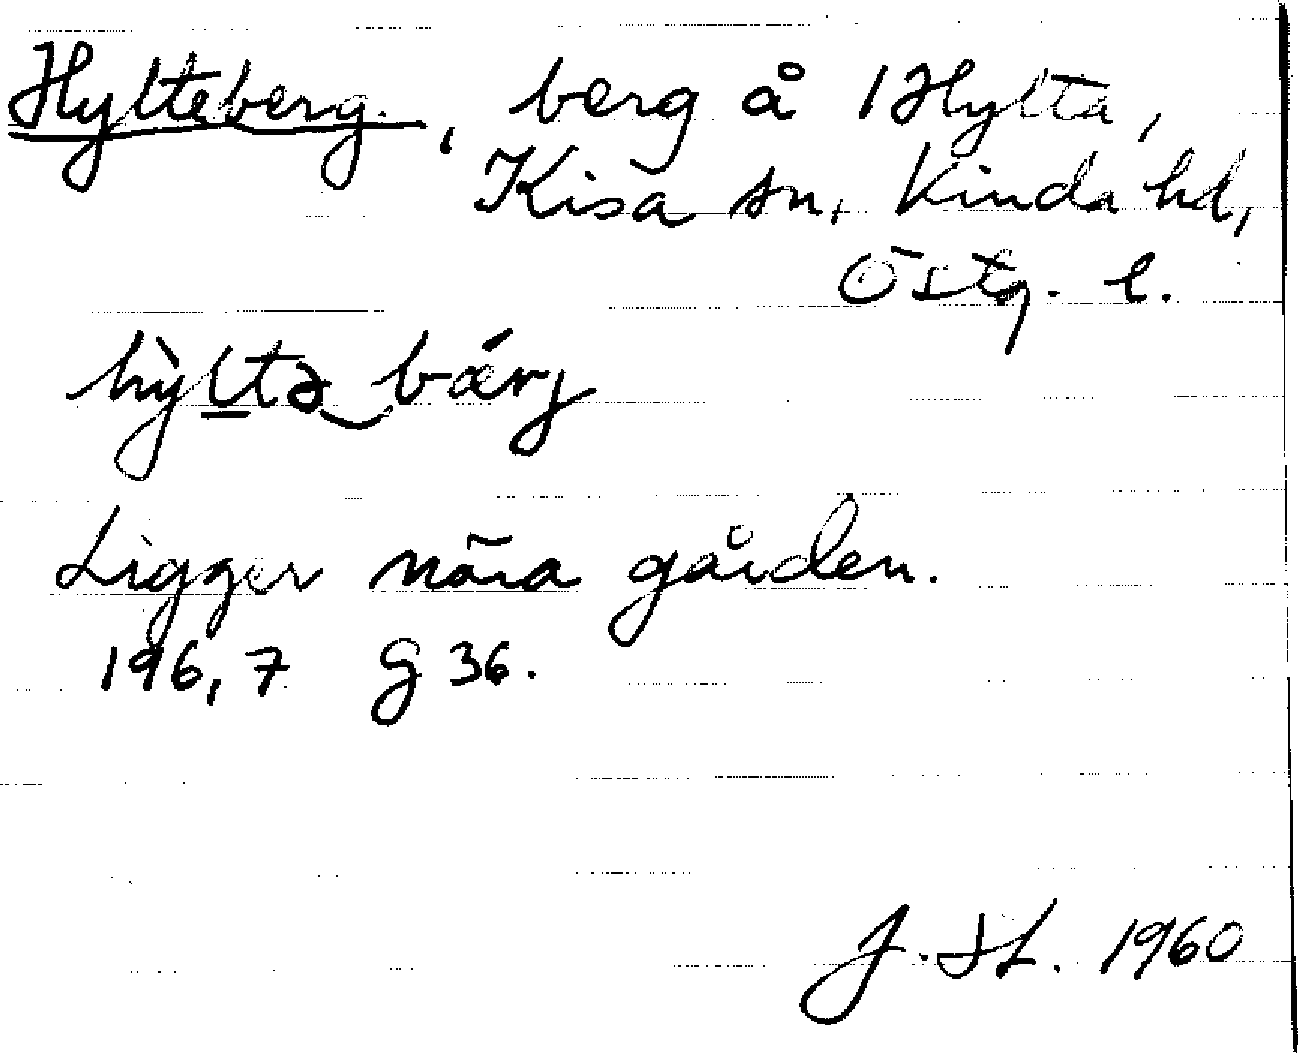 Hylteberg, berg å 1 Hylta,
Kisa sn, Kinda hd,
Östg. l.
hỳltə‿bǽrj
Ligger nära gården.
196,7 G 36.
J. 1960